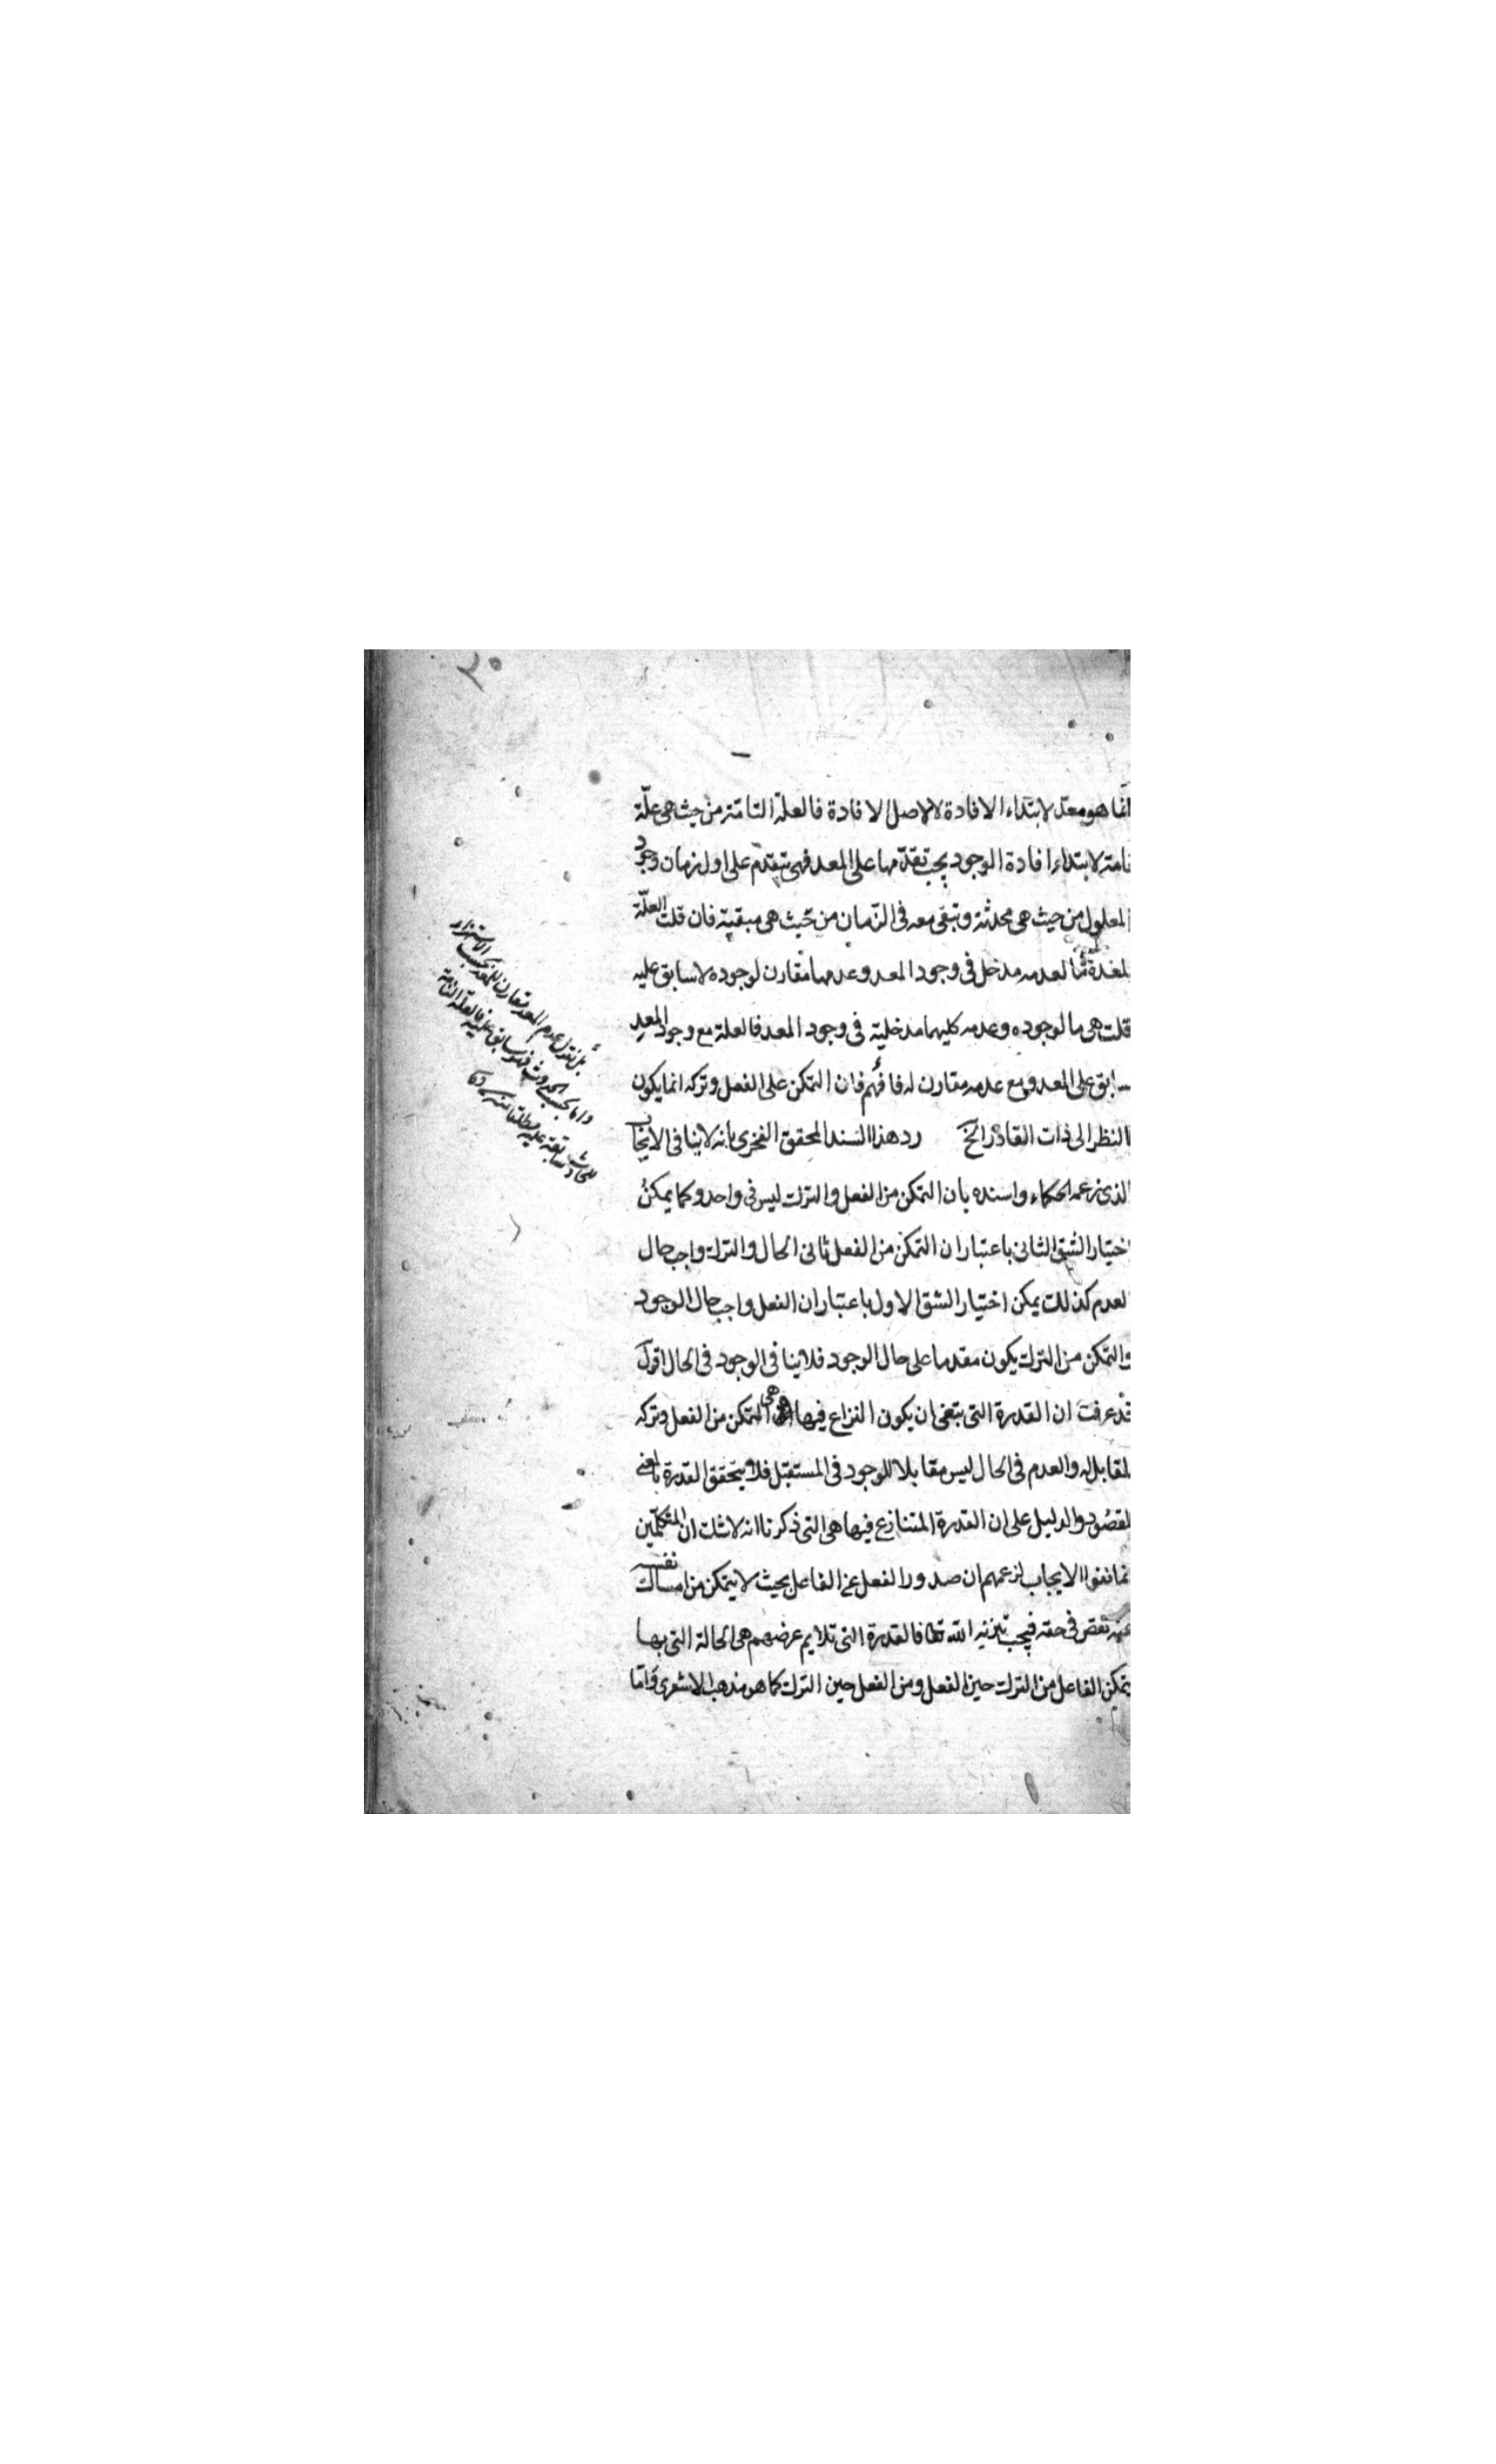 ٢٠
انما هو معدّ لابتداء الافادة لا لاصل الافادة فالعلة التامّة من حيث هى علّة
تامة لابتداء افادة الوجود يجب تقدّمها على المعد فهى تتقدّم على اول زمان وجود
المعلول من حيث هى محدثة وتبقى معه فى الزمان من حيث هى مبقية فان قلت العلّة
المعدة ما لعدمه مدخل فى وجود المعد وعدمها مقارن لوجوده لا سابق عليه
قلت هى ما لوجوده وعدمه كليهما مدخلية فى وجود المعد فالعلة مع وجود المعد
سابق على المعد ومع عدمه مقارن له فافهم فان التمكن على الفعل وتركه انما يكون
بالنظر الى ذات القادر الخ رد هذا السند المحقق الفخرى بانه لا ينافى الايجاب
الذى زعمه الحكماء واسنده بان التمكن من الفعل والترك ليس فى واحد وكما يمكن
اختيار الشق الثانى باعتبار ان التمكن من الفعل ثانى الحال والترك واجب حال
العدم كذلك يمكن اختيار الشق الاول باعتبار ان الفعل واجب حال الوجود
والتمكن من الترك يكون مقدما على حال الوجود فلا ينافى الوجود فى الحال اقول
قد عرفت ان القدرة التى ينبغى ان يكون النزاع فيها هى التمكن من الفعل وتركه
المقابل له والعدم فى الحال ليس مقابلا للوجود فى المستقبل فلا يتحقق القدرة بالمعنى
المقصود والدليل على ان القدرة المتنازع فيها هى التى ذكرنا انه لا شك ان المتكلّمين
انما نفوا الايجاب لزعمهم ان صدور الفعل عن الفاعل بحيث لا يتمكن من امساك نفسه
عنه نقص فى حقه فيجب تنزيه الله تعا فالقدرة التى تلايم غرضهم هى الحالة التى بها
يتمكن الفاعل من الترك حين الفعل ومن الفعل حين الترك كما هو مذهب الاشعرى وامّا
بل نقول عدم المعد مقارن للمعد بحسب الاستمرار
واما بحسب الحدوث فهو سابق عليه فالعلة التامة
للحادث سابقة عليه مطلقا